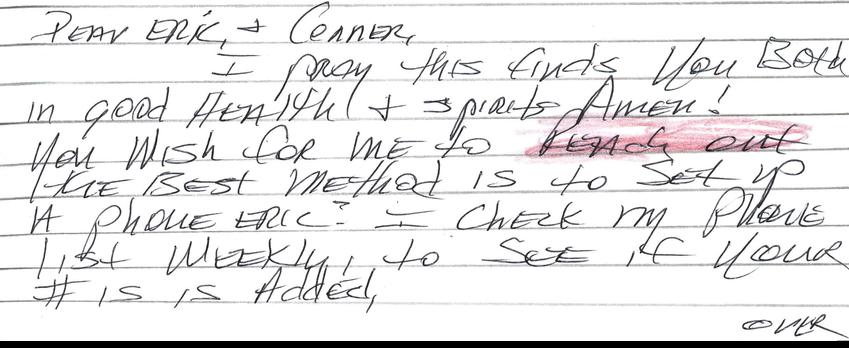 Dear Eric, + Conner,
I pray this finds you Both
in good Health + spirits Amen!
You wish for me to Reach out
the Best method is to set up
A phone Eric? I check my phone
list weekly, to see if your
# is is Added,
over